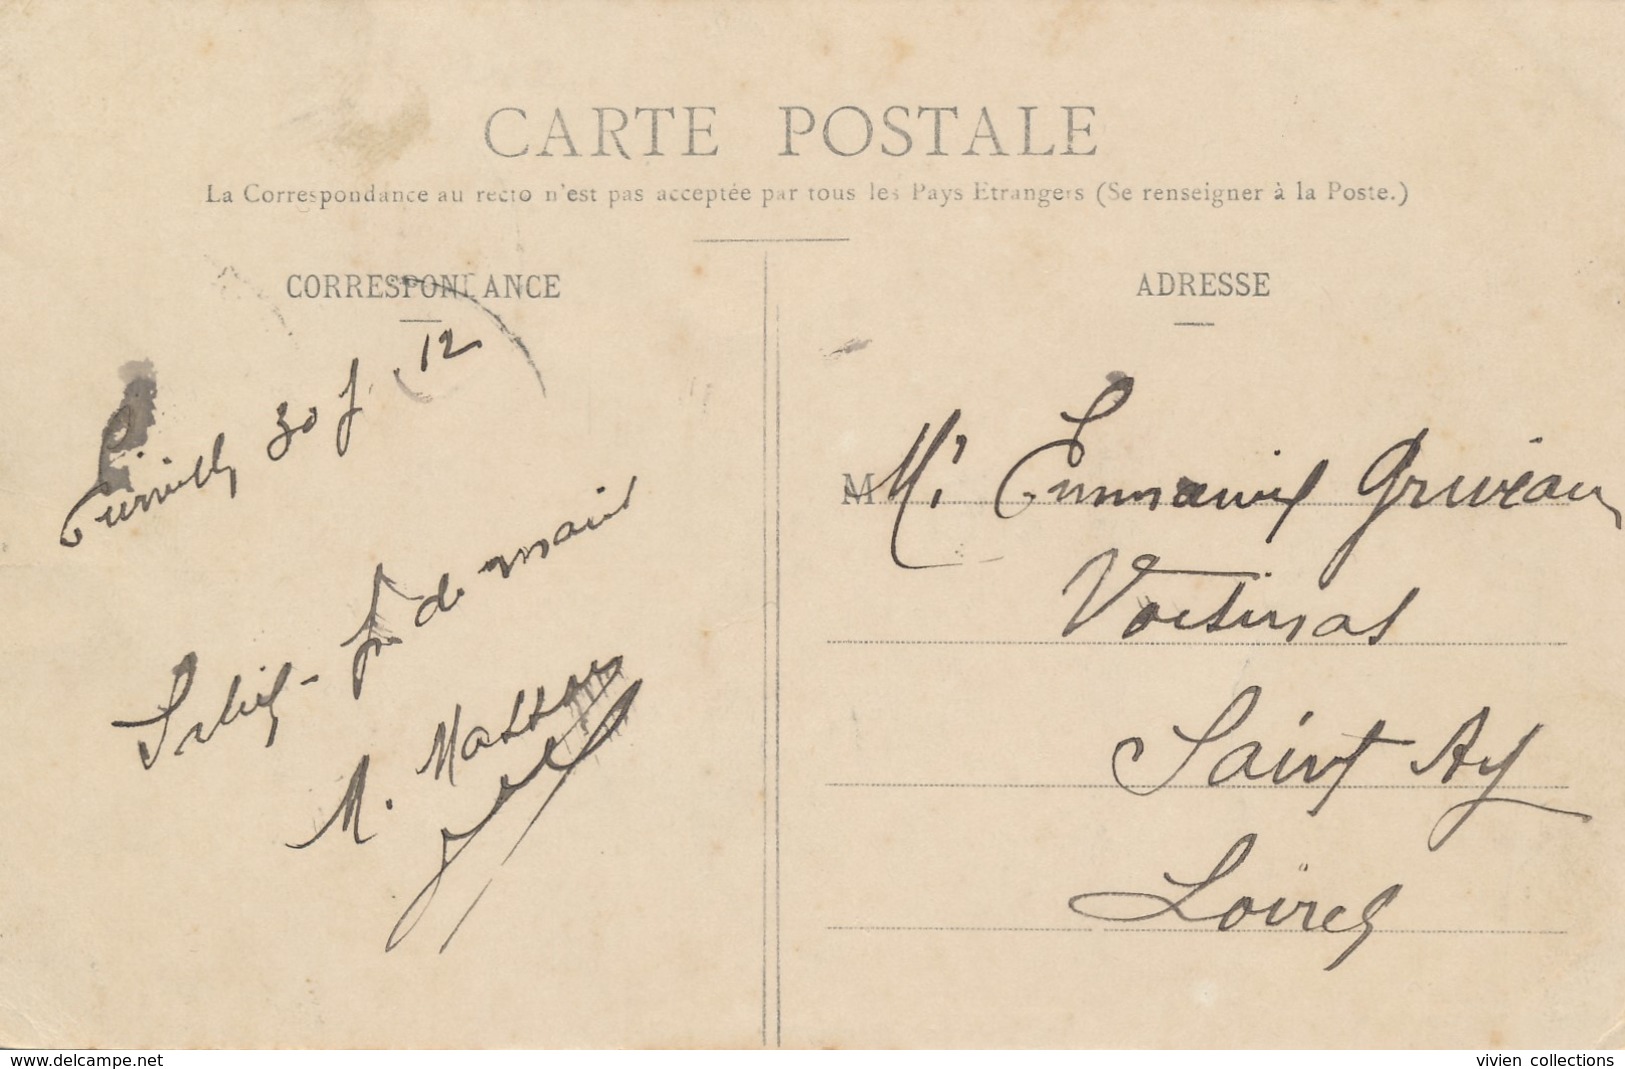 CARTE POSTALE
La Correspondance au recto n'est pas acceptée par tous les Pays Etrangers (Se renseigner à la Poste.)
CORRESPONDANCE
ADRESSE
30 J. 12
de main
M. Masson
M Mr Emmanuel Griveau
Voisinas
Saint Ay
Loiret
www.delcampe.net
vivien collections